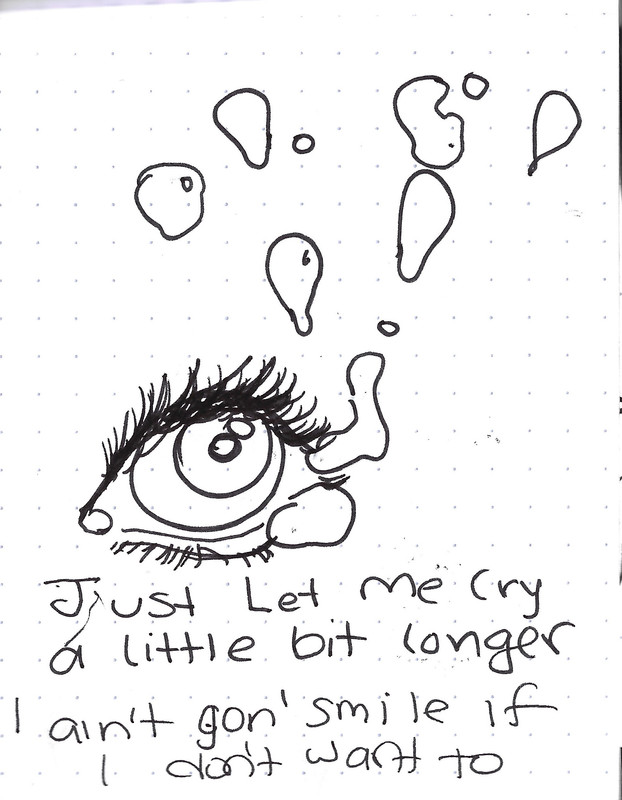 Just Let me Cry
a little bit longer
I ain't gon' smile if
I don't want to